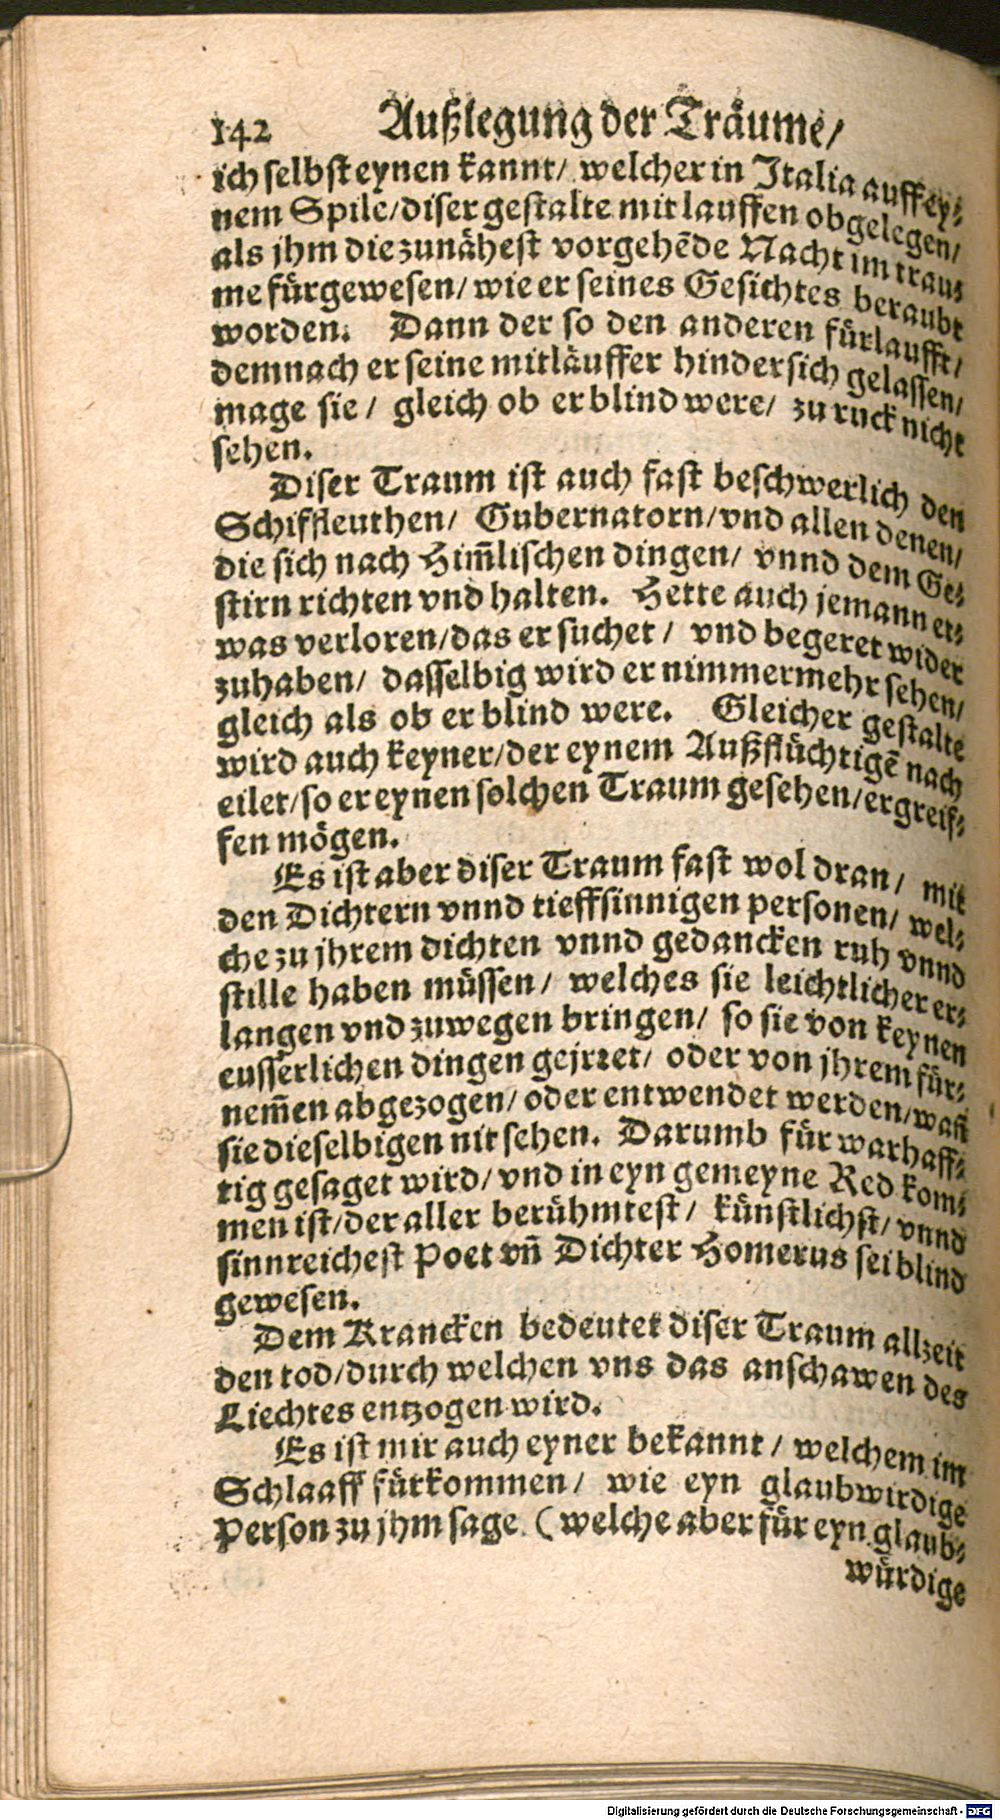 142 Außlegung der Träume/
ich selbst eynen kannt/ welcher in Italia auff ey⸗
nem Spile/diser gestalte mit lauffen obgelegen/
als jhm die zunähest vorgehēde Nacht im trau⸗
me fürgewesen/ wie er seines Gesichtes beraubt
worden. Dann der so den anderen fürlaufft/
demnach er seine mitläuffer hinder sich gelassen/
mage sie/ gleich ob er blind were/ zu ruck nicht
sehen.
Diser Traum ist auch fast beschwerlich den
Schiffleuthen/ Gubernatorn/vnd allen denen/
die sich nach Him̃lischen dingen/ vnnd dem Ge⸗
stirn richten vnd halten. Hette auch jemann et⸗
was verloren/das er suchet/ vnd begeret wider
zuhaben/ dasselbig wird er nimmermehr sehen/
gleich als ob er blind were. Gleicher gestalte
wird auch keyner/der eynem Außflüchtigē nach
eilet/so er eynen solchen Traum gesehen/ergreif⸗
fen mögen.
Es ist aber diser Traum fast wol dran/ mit
den Dichtern vnnd tieffsinnigen personen/ wel⸗
che zu jhrem dichten vnnd gedancken ruh vnnd
stille haben müssen/ welches sie leichtlicher er⸗
langen vnd zuwegen bringen/ so sie von keynen
eusserlichen dingen gejrret/ oder von jhrem für⸗
nem̃en abgezogen/oder entwendet werden/wañ
sie dieselbigen nit sehen. Darumb für warhaff⸗
tig gesaget wird/vnd in eyn gemeyne Red kom⸗
men ist/der aller berühmtest/ künstlichst/ vnnd
sinnreichest Poet vñ Dichter Homerus sei blind
gewesen.
Dem Krancken bedeutet diser Traum allzeit
den tod/durch welchen vns das anschawen des
Liechtes entzogen wird.
Es ist mir auch eyner bekannt/ welchem im
Schlaaff fürkommen/ wie eyn glaubwirdige
Person zu jhm sage (welche aber für eyn glaub⸗
würdige
Digitalisierung gefördert durch die Deutsche Forschungsgemeinschaft - DFG